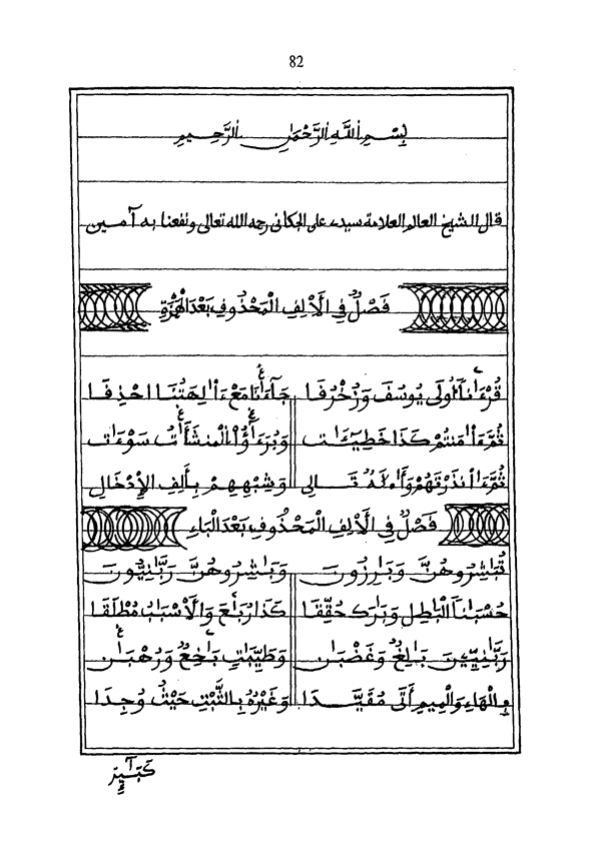 82
بِسْمِ اللَّهِ الرَّحْمَٰنِ الرَّحِيمِ
قال الشيخ العالم العلامة سيدي علي الجكاني رحمه الله تعالى ونفعنا به آمين
فَصْلٌ فِي الْأَلِفِ الْمَحْذُوفِ بَعْدَ الْهَمْزَةِ
قُرْءَٰناً اُولَى يُوسُفَ وَزُخْرُفَا جَآءَٰنَا مَعْ ءَاٰلِهَتُنَا احْذِفَا
ثُمَّ ءَاٰمَنتُم كَذَا خَطِيٓـَٰٔت وَبُرَءَٰٓؤُاْ الْمُنشَـَٰٔتُ سَوْءَٰت
ثُمَّ ءَاٰنذَرْتَهُمْ وَأَ.لَهٌ تَالِي وَشِبْهِهِمْ بِأَلِفِ الْإِدْخَالِ
فَصْلٌ فِي الْأَلِفِ الْمَحْذُوفِ بَعْدَ الْبَاءِ
تُبَٰشِرُوهُنَّ وَبَٰرِزُونَ وَبَٰشِرُوهُنَّ رَبَّٰنِيُّونَ
حُسْبَٰناً الْبَٰطِلُ وَبَٰرَكَ حُقِّقَا كَذَا رُبَٰعَ وَالْأَسْبَٰبُ مُطْلَقَا
رَبَّٰنِيِّينَ بَٰلِغُ وَغَضْبَٰنَ وَطَيِّبَٰتِ بَٰخِعٌ وَرُهْبَٰنَ
بِالْهَاءِ وَالْمِيمِ أَتَى مُقَيَّدَا وَغَيْرُهُ بِالثَّبْتِ حَيْثُ وُجِدَا
كَبَٰٓئِرَ